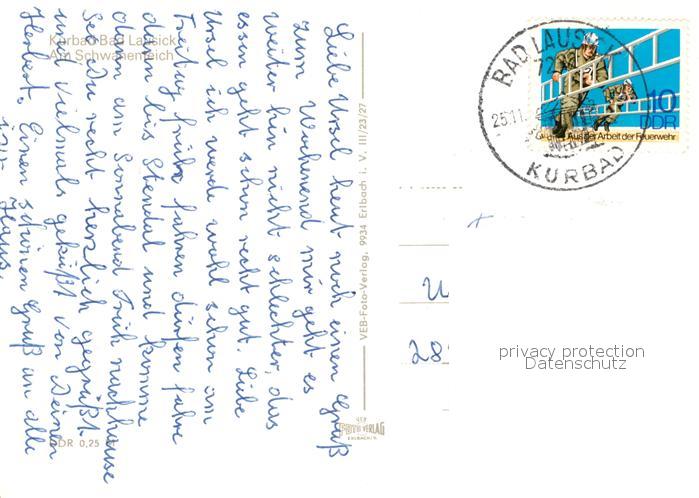 Kurbad Bad Lausick
Am Schwanenteich
Liebe Ursel heut noch einen Gruß
zum Wochenend mir geht es
weiter hin nicht schlechter, das
essen geht schon recht gut. Liebe
Ursel ich werde wohl schon am
Freitag früh fahren dürfen fahre
dann bis Stendal und komme
dann am Sonnabend Früh nachhause
Sei Du recht herzlich gegrüßt
und vielmals geküßt von Deinen
Herbert. Einen schönen Gruß an alle
im Hause
DDR 0,25 M
VEB-Foto-Verlag, 9934 Erlbach i. V. III/23/27
VEB
FOTO VERLAG
ERLBACH/V.
BAD LAUSICK
72
25.11.
KURBAD
10
DDR
Aus der Arbeit der Feuerwehr
U
28
privacy protection
Datenschutz